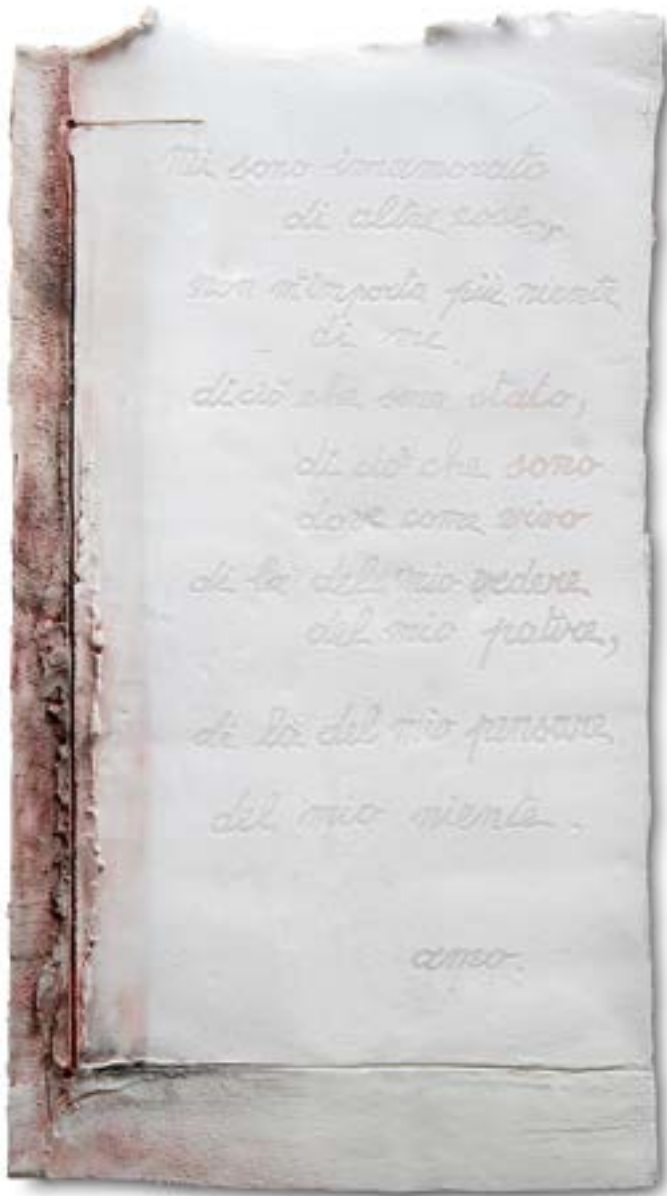 Mi sono innamorato
di altre cose,
non m'importa più niente
di me
di ciò che sono stato,
di ciò che sono
dove come vivo
di là del mio vedere
del mio patire,
di là del mio pensare
del mio niente.
amo.